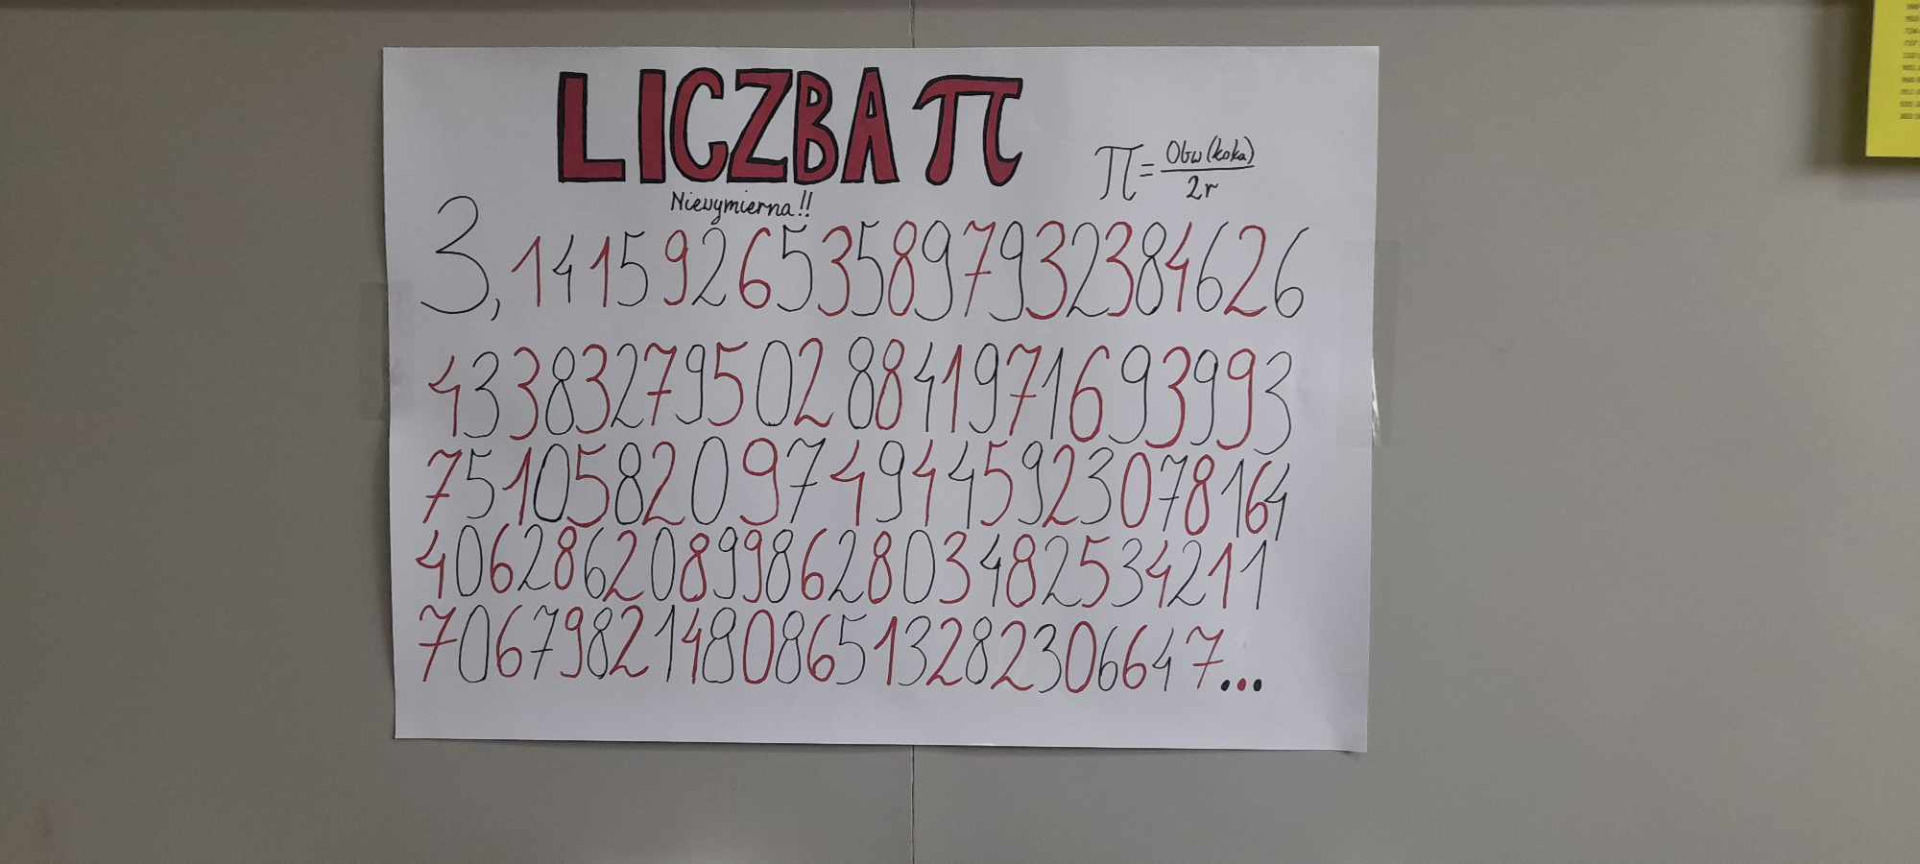 LICZBA π
π = Obw(koła) / 2r
Niewymierna!!
3,1415926535897932384626
433832795028841971693993
751058209749445923078164
40628620899862803482534211
7067982148086513282306647...